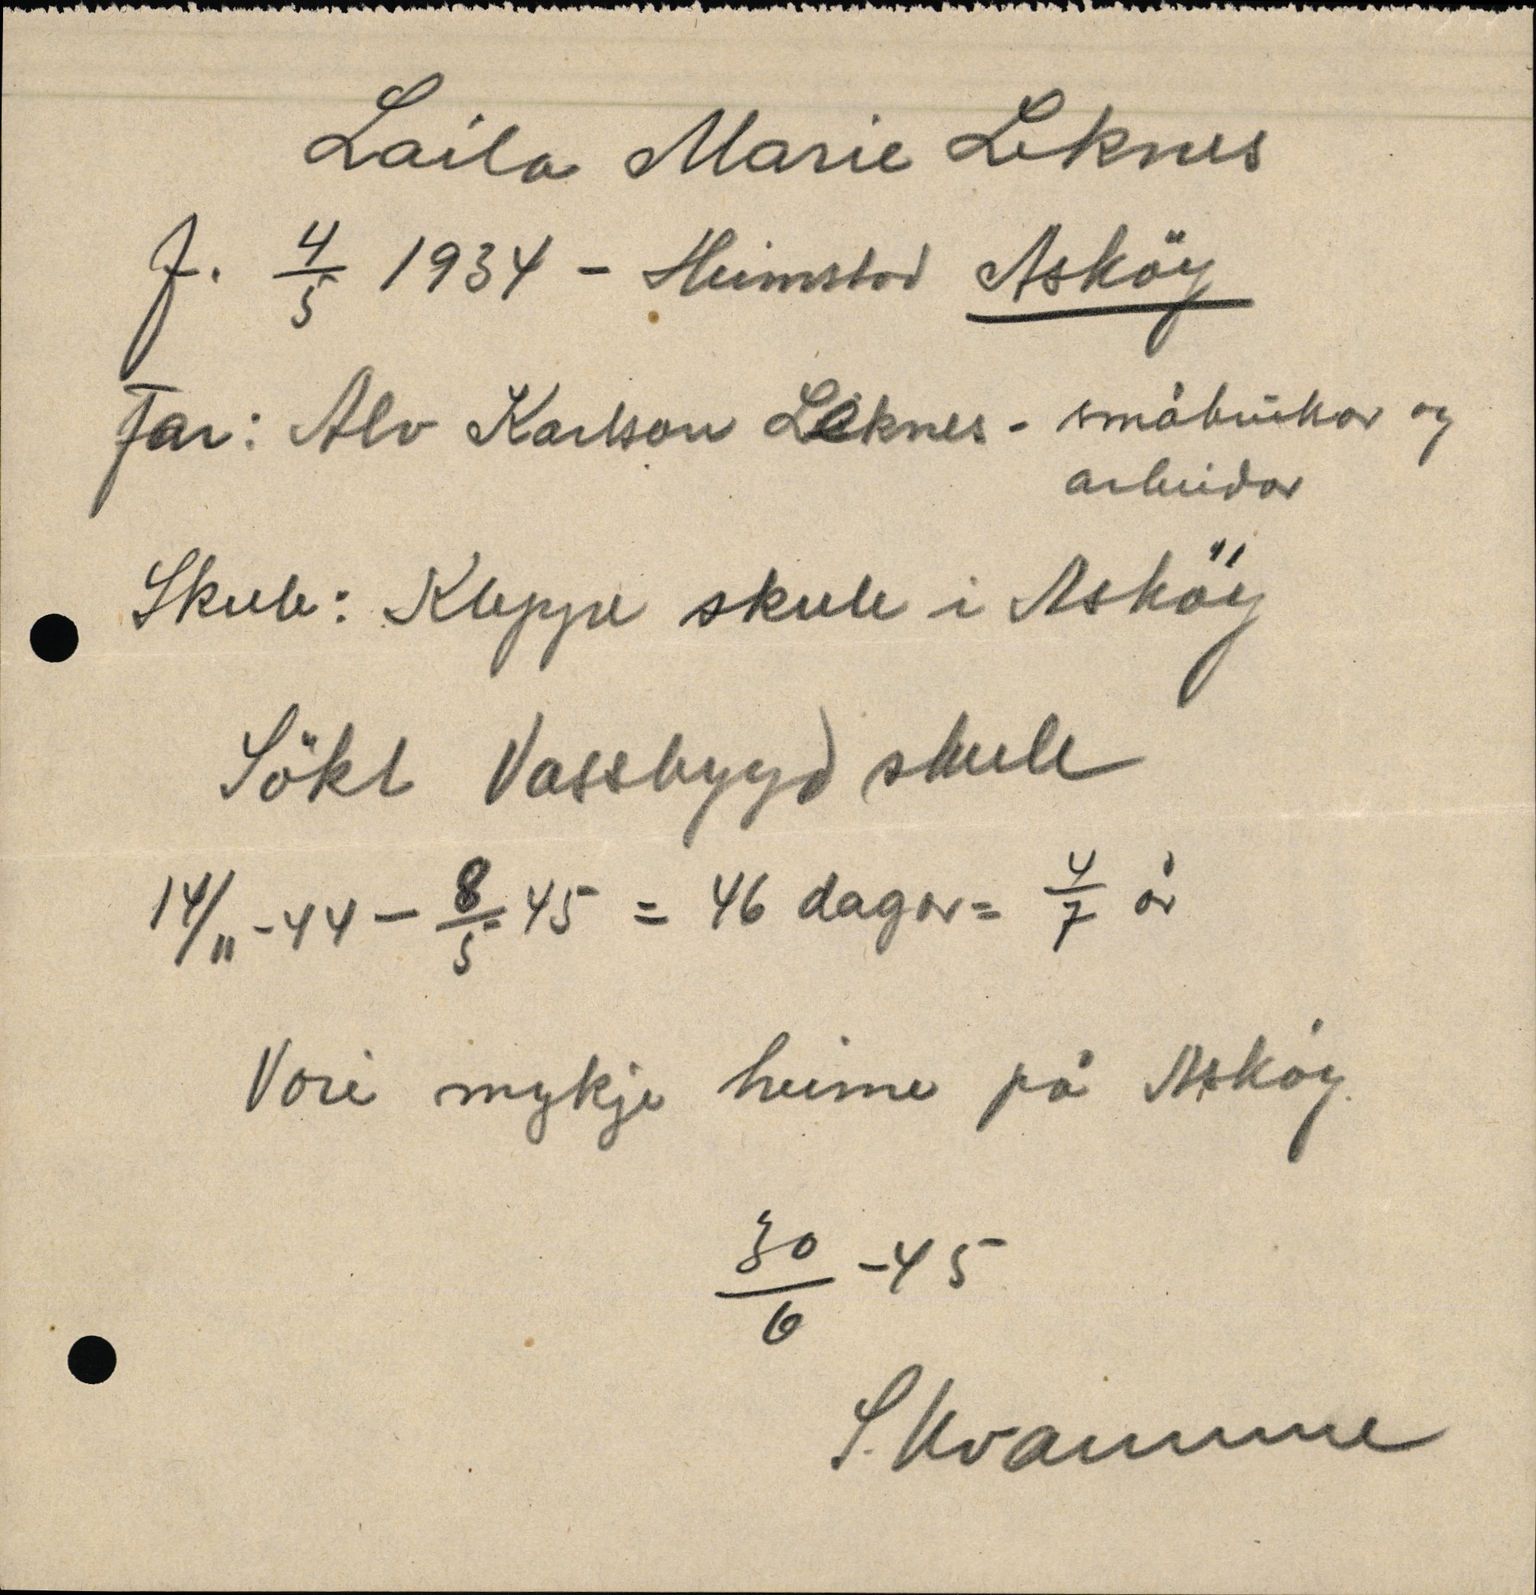 Laila Marie Leknes
f. 4/5 1934 - Heimstad Asköy
Far: Alv Karlson Leknes - småbrukar og
arbeidar
Skule: Kleppe skule i Asköy
Sökt Vassbygd skule
14/11 -44 - 8/5 45 = 46 dagar = 4/7 år
Vore mykje heime på Asköy.
30/6 -45
S. Kvamme